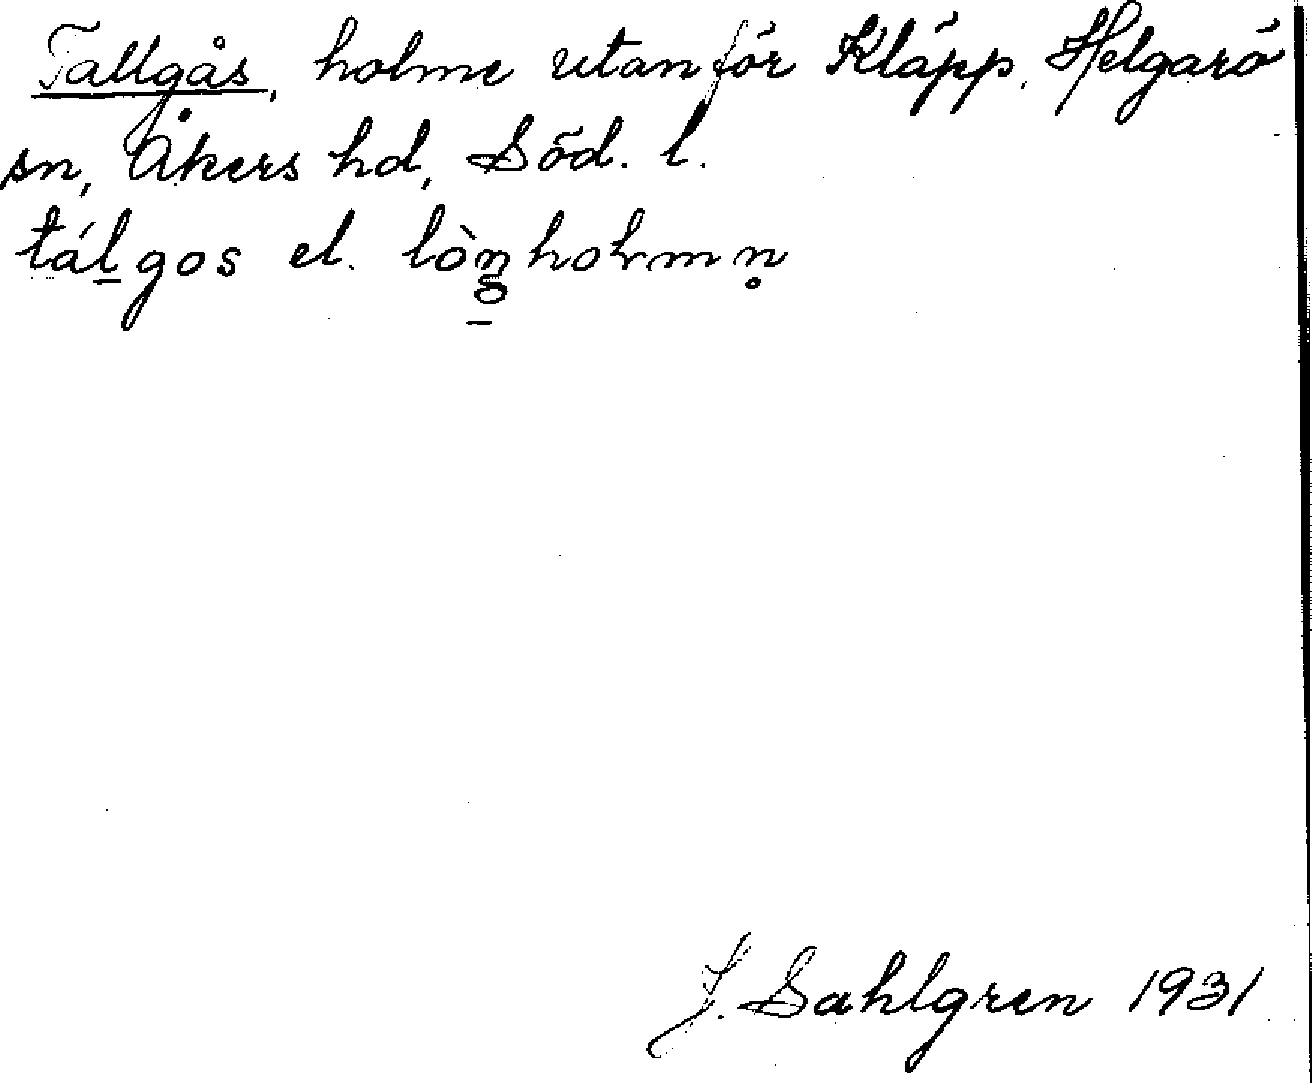 Tallgås, holme utanför Kläpp, Helgarö
sn, Åkers hd, Söd. l.
tál̲gos el. lòŋholmn̥
J. Sahlgren 1931